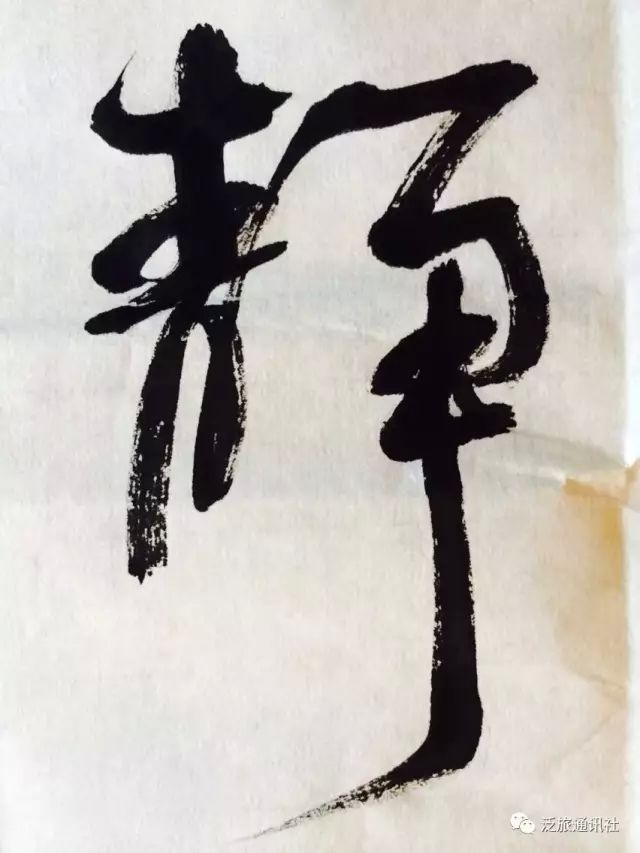 静
泛旅通讯社